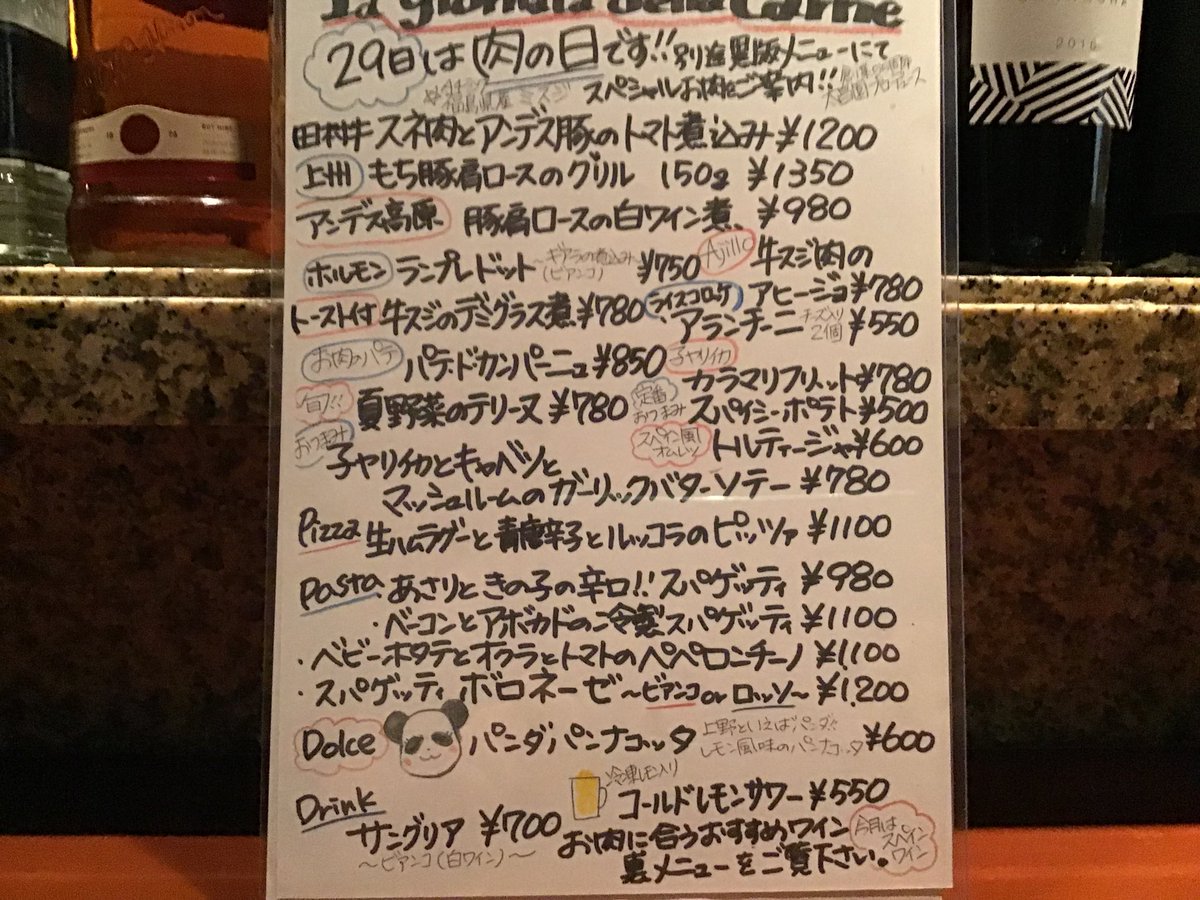 la giornata della Carne
29日は肉の日です!! 別途黒版メニューにて
スペシャルお肉をご案内!!
田村牛 スネ肉とアンデス豚のトマト煮込み ¥1200
上州 もち豚肩ロースのグリル 150g ¥1350
アンデス高原 豚肩ロースの白ワイン煮 ¥980
ホルモン ランプレドット ~ギアラの煮込み~ (ビアンコ) ¥750
Ajillo 牛スジ肉の
アヒージョ ¥780
トースト付 牛スジのデミグラス煮 ¥780
ライスコロッケ アランチーニ チーズ入り 2個 ¥550
お肉のパテ パテ・ド・カンパーニュ ¥850
子ヤリイカ カラマリフリット ¥780
旬!! 夏野菜のテリーヌ ¥780
定番おつまみ スパイシーポテト ¥500
スペイン風オムレツ トルティージャ ¥600
おつまみ 子ヤリイカとキャベツと
マッシュルームのガーリックバターソテー ¥780
Pizza 生ハムラグーと青唐辛子とルッコラのピッツァ ¥1100
Pasta あさりときの子の辛口!! スパゲッティ ¥980
・ベーコンとアボカドの冷製スパゲッティ ¥1100
・ベビーホタテとオクラとトマトのペペロンチーノ ¥1,100
・スパゲッティ ボロネーゼ ~ビアンコ or ロッソ~ ¥1,200
Dolce パンダパンナコッタ 上野といえばパンダ!! レモン風味のパンナコッタ ¥600
Drink サングリア ¥700
~ビアンコ(白ワイン)~
冷凍レモン入り
コールドレモンサワー ¥550
お肉に合うおすすめワイン
裏メニューをご覧下さい。
今月はスペインワイン
2016